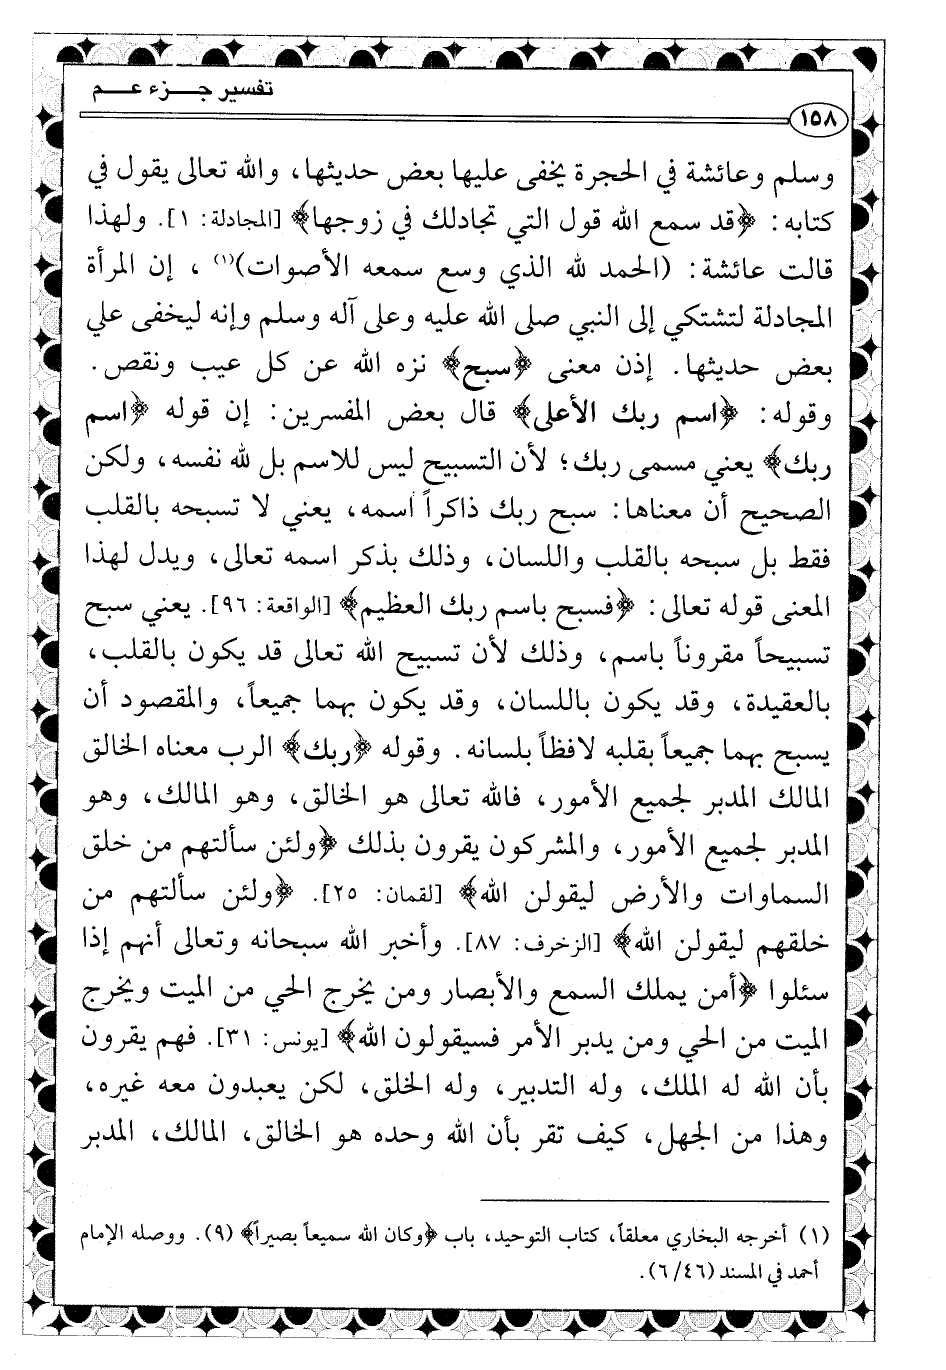 تفسير جزء عم
١٥٨
وسلم وعائشة في الحجرة يخفى عليها بعض حديثها، والله تعالى يقول في
كتابه: ﴿قد سمع الله قول التي تجادلك في زوجها﴾ [المجادلة: ١]. ولهذا
قالت عائشة: (الحمد لله الذي وسع سمعه الأصوات)(١) ، إن المرأة
المجادلة لتشتكي إلى النبي صلى الله عليه وعلى آله وسلم وإنه ليخفى علي
بعض حديثها. إذن معنى ﴿سبح﴾ نزه الله عن كل عيب ونقص.
وقوله: ﴿اسم ربك الأعلى﴾ قال بعض المفسرين: إن قوله ﴿اسم
ربك﴾ يعني مسمى ربك؛ لأن التسبيح ليس للاسم بل لله نفسه، ولكن
الصحيح أن معناها: سبح ربك ذاكراً اسمه، يعني لا تسبحه بالقلب
فقط بل سبحه بالقلب واللسان، وذلك بذكر اسمه تعالى، ويدل لهذا
المعنى قوله تعالى: ﴿فسبح باسم ربك العظيم﴾ [الواقعة: ٩٦]. يعني سبح
تسبيحاً مقروناً باسم، وذلك لأن تسبيح الله تعالى قد يكون بالقلب،
بالعقيدة، وقد يكون باللسان، وقد يكون بهما جميعاً، والمقصود أن
يسبح بهما جميعاً بقلبه لافظاً بلسانه. وقوله ﴿ربك﴾ الرب معناه الخالق
المالك المدبر لجميع الأمور، فالله تعالى هو الخالق، وهو المالك، وهو
المدبر لجميع الأمور، والمشركون يقرون بذلك ﴿ولئن سألتهم من خلق
السماوات والأرض ليقولن الله﴾ [لقمان: ٢٥]. ﴿ولئن سألتهم من
خلقهم ليقولن الله﴾ [الزخرف: ٨٧]. وأخبر الله سبحانه وتعالى أنهم إذا
سئلوا ﴿أمن يملك السمع والأبصار ومن يخرج الحي من الميت ويخرج
الميت من الحي ومن يدبر الأمر فسيقولون الله﴾ [يونس: ٣١]. فهم يقرون
بأن الله له الملك، وله التدبير، وله الخلق، لكن يعبدون معه غيره،
وهذا من الجهل، كيف تقر بأن الله وحده هو الخالق، المالك، المدبر
(١) أخرجه البخاري معلقاً، كتاب التوحيد، باب ﴿وكان الله سميعاً بصيراً﴾ (٩). ووصله الإمام
أحمد في المسند (٦/٤٦).